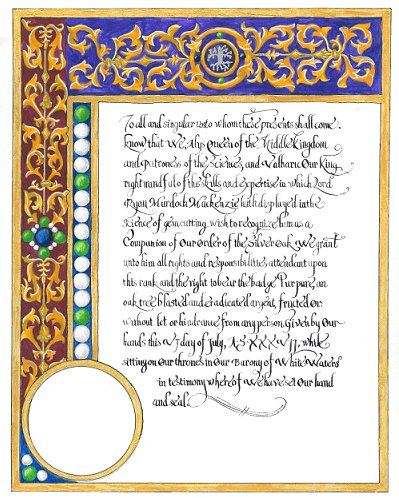 To all and singular unto whom these presents shall come.
know that We, Alys Queen of the Middle Kingdom
and patroness of the Sciences, and Valharic Our King
right mindful of the skills and expertise in which Lord
Ryan Murdoch Mackenzie hath displayed in the
science of gem cutting, wish to recognize him as a
Companion of Our Order of the Silver Oak. We grant
unto him all rights and responsibilities attendant upon
this rank and the right to bear the badge Purpure, an
oak tree blasted and eradicated argent, fructed Or.
without let or hindrance from any person. Given by Our
hands this VI day of July, A.S. XXXVII, while
sitting on Our thrones in Our Barony of White Waters
in testimony whereof We have set Our hand
and seal.